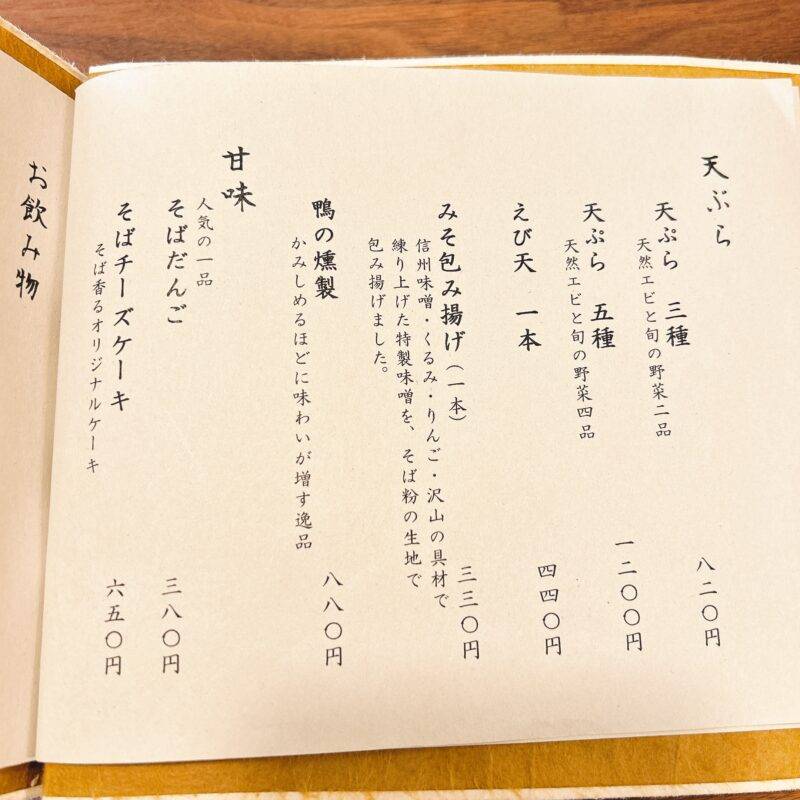 天ぷら
天ぷら 三種
天然エビと旬の野菜二品
八二〇円
天ぷら 五種
天然エビと旬の野菜四品
一二〇〇円
えび天 一本
四四〇円
みそ包み揚げ（一本）
信州味噌・くるみ・りんご・沢山の具材で
練り上げた特製味噌を、そば粉の生地で
包み揚げました。
三三〇円
鴨の燻製
かみしめるほどに味わいが増す逸品
八八〇円
甘味
人気の一品
そばだんご
三八〇円
そばチーズケーキ
そば香るオリジナルケーキ
六五〇円
お飲み物